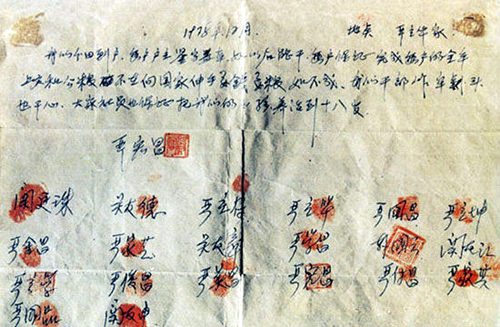 1978年12月 地点 严立华家
我们分田到户,每户户主签字盖章,如以后能干,每户保证完成每户的全年
上交和公粮 不在向国家伸手要钱要粮,如不成,我们干部作牢刹头
也干心,大家社员也保证把我们的小孩养活到十八岁
严宏昌
关廷珠 关友德 严立符 严立华 严国昌 严立坤
严金昌 严家芝 关友章 严学昌 关友江
严立学 严俊昌 严美昌 严宏昌 严付昌 严家其
严国品 关友申